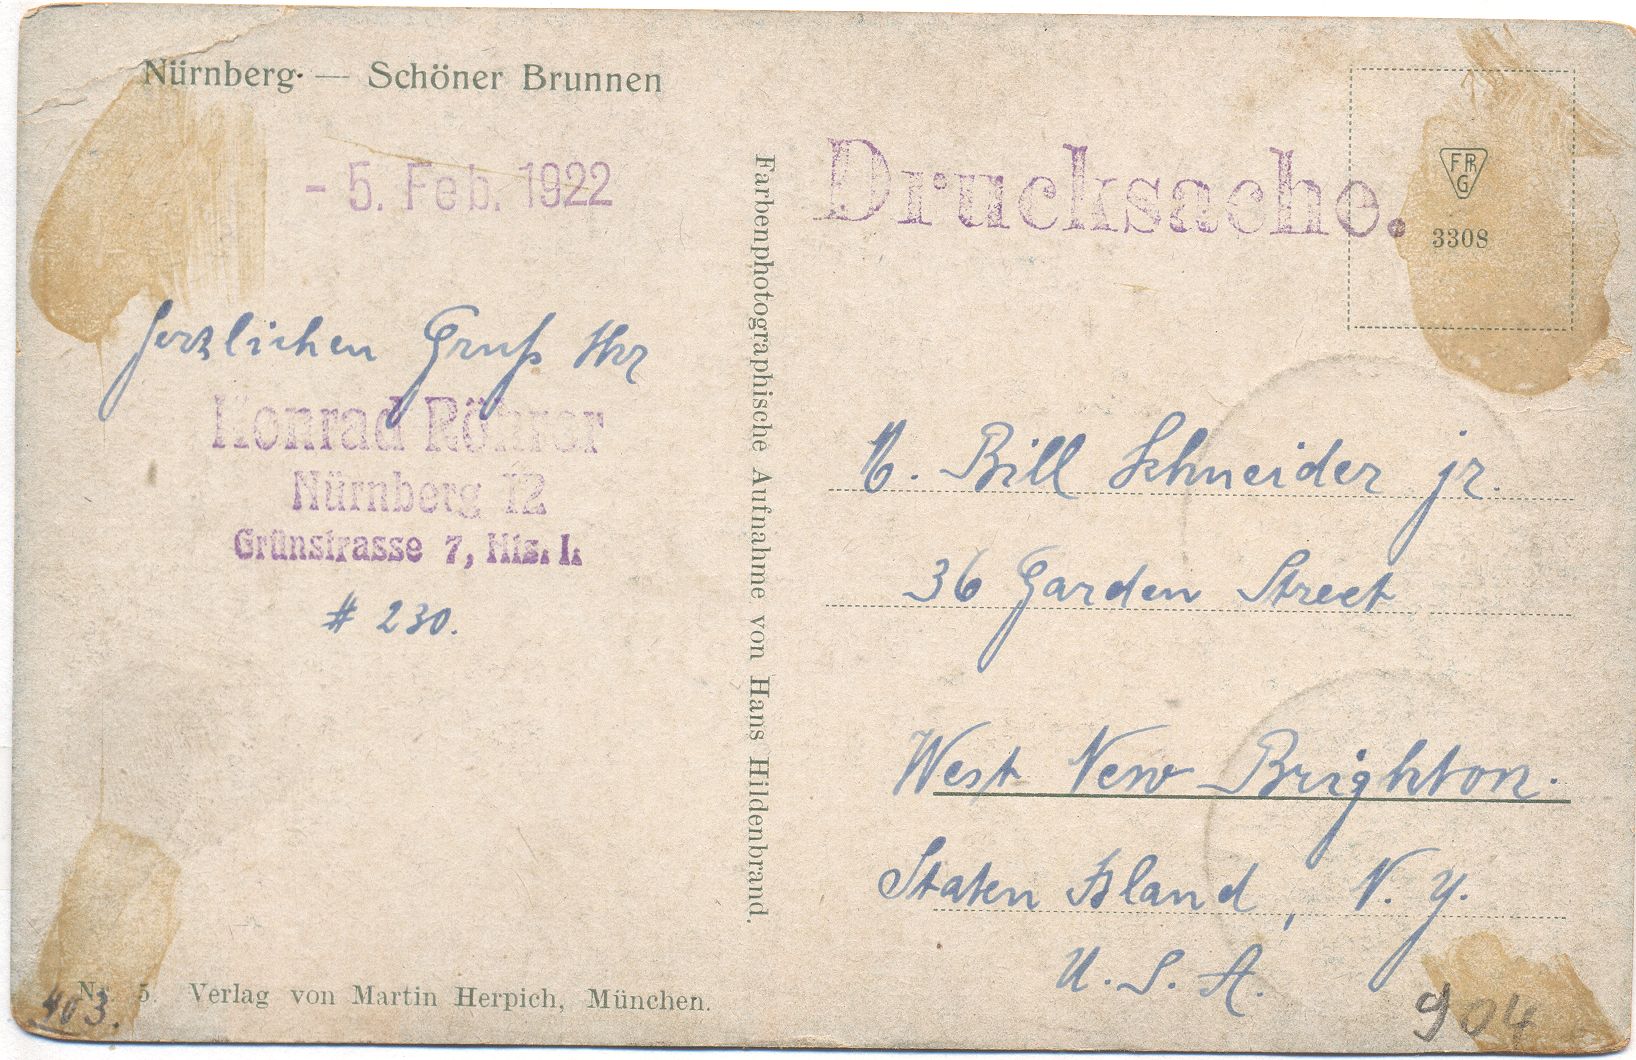 Nürnberg. — Schöner Brunnen
- 5. Feb. 1922
Herzlichen Gruß Ihr
Konrad Röhrer
Nürnberg 12
Grünstrasse 7, Hts. I.
# 230.
Nr. 5. Verlag von Martin Herpich, München.
403.
Farbenphotographische Aufnahme von Hans Hildenbrand.
Drucksache.
FRPG
3308
Bill Schneider jr.
36 Garden Street
West New Brighton.
Staten Island, N. Y.
U. S. A.
904